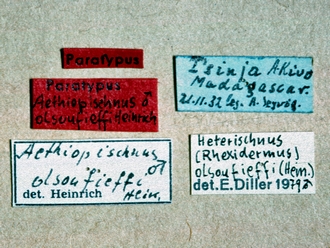 Paratypus
Paratypus
Aethiopischnus ♂
olsoufieffi Heinrich
Aethiopischnus
olsoufieffi ♂
det. Heinrich Hein.
Tsinjoarivo
Madagascar.
Leg. A.
Heterischnus
(Rhexidermus)
olsoufieffi (Hein.)
det. E. Diller 1979